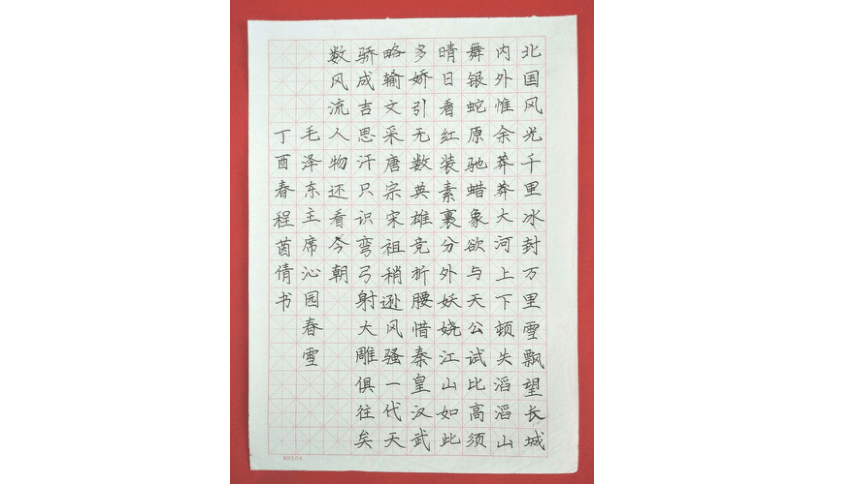 北国风光千里冰封万里雪飘望长城
内外惟余莽莽大河上下顿失滔滔山
舞银蛇原驰蜡象欲与天公试比高须
晴日看红装素裹分外妖娆江山如此
多娇引无数英雄竞折腰惜秦皇汉武
略输文采唐宗宋祖稍逊风骚一代天
骄成吉思汗只识弯弓射大雕俱往矣
数风流人物还看今朝
毛泽东主席沁园春雪
丁酉春程茵倩书